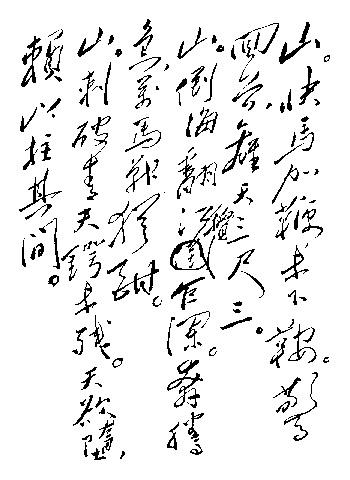 山。快馬加鞭未下鞍。驚
回首,離天三尺三。
山。倒海翻江巨瀾。奔騰
急,萬馬戰猶酣。
山。刺破青天鍔未殘。天欲墮,
賴以拄其間。